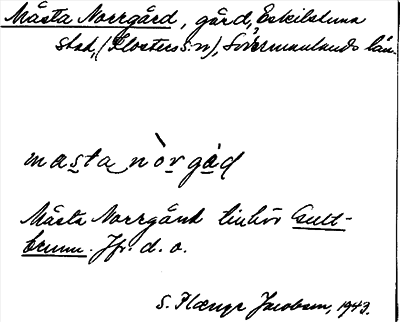 Mästa Norrgård, gård, Eskilstuna
stad, (Klosters s:n), Södermanlands län.
masta nòrgåd
Mästa Norrgård tillhör
Jfr. d. o.
S. Flænge Jacobsen, 1943.